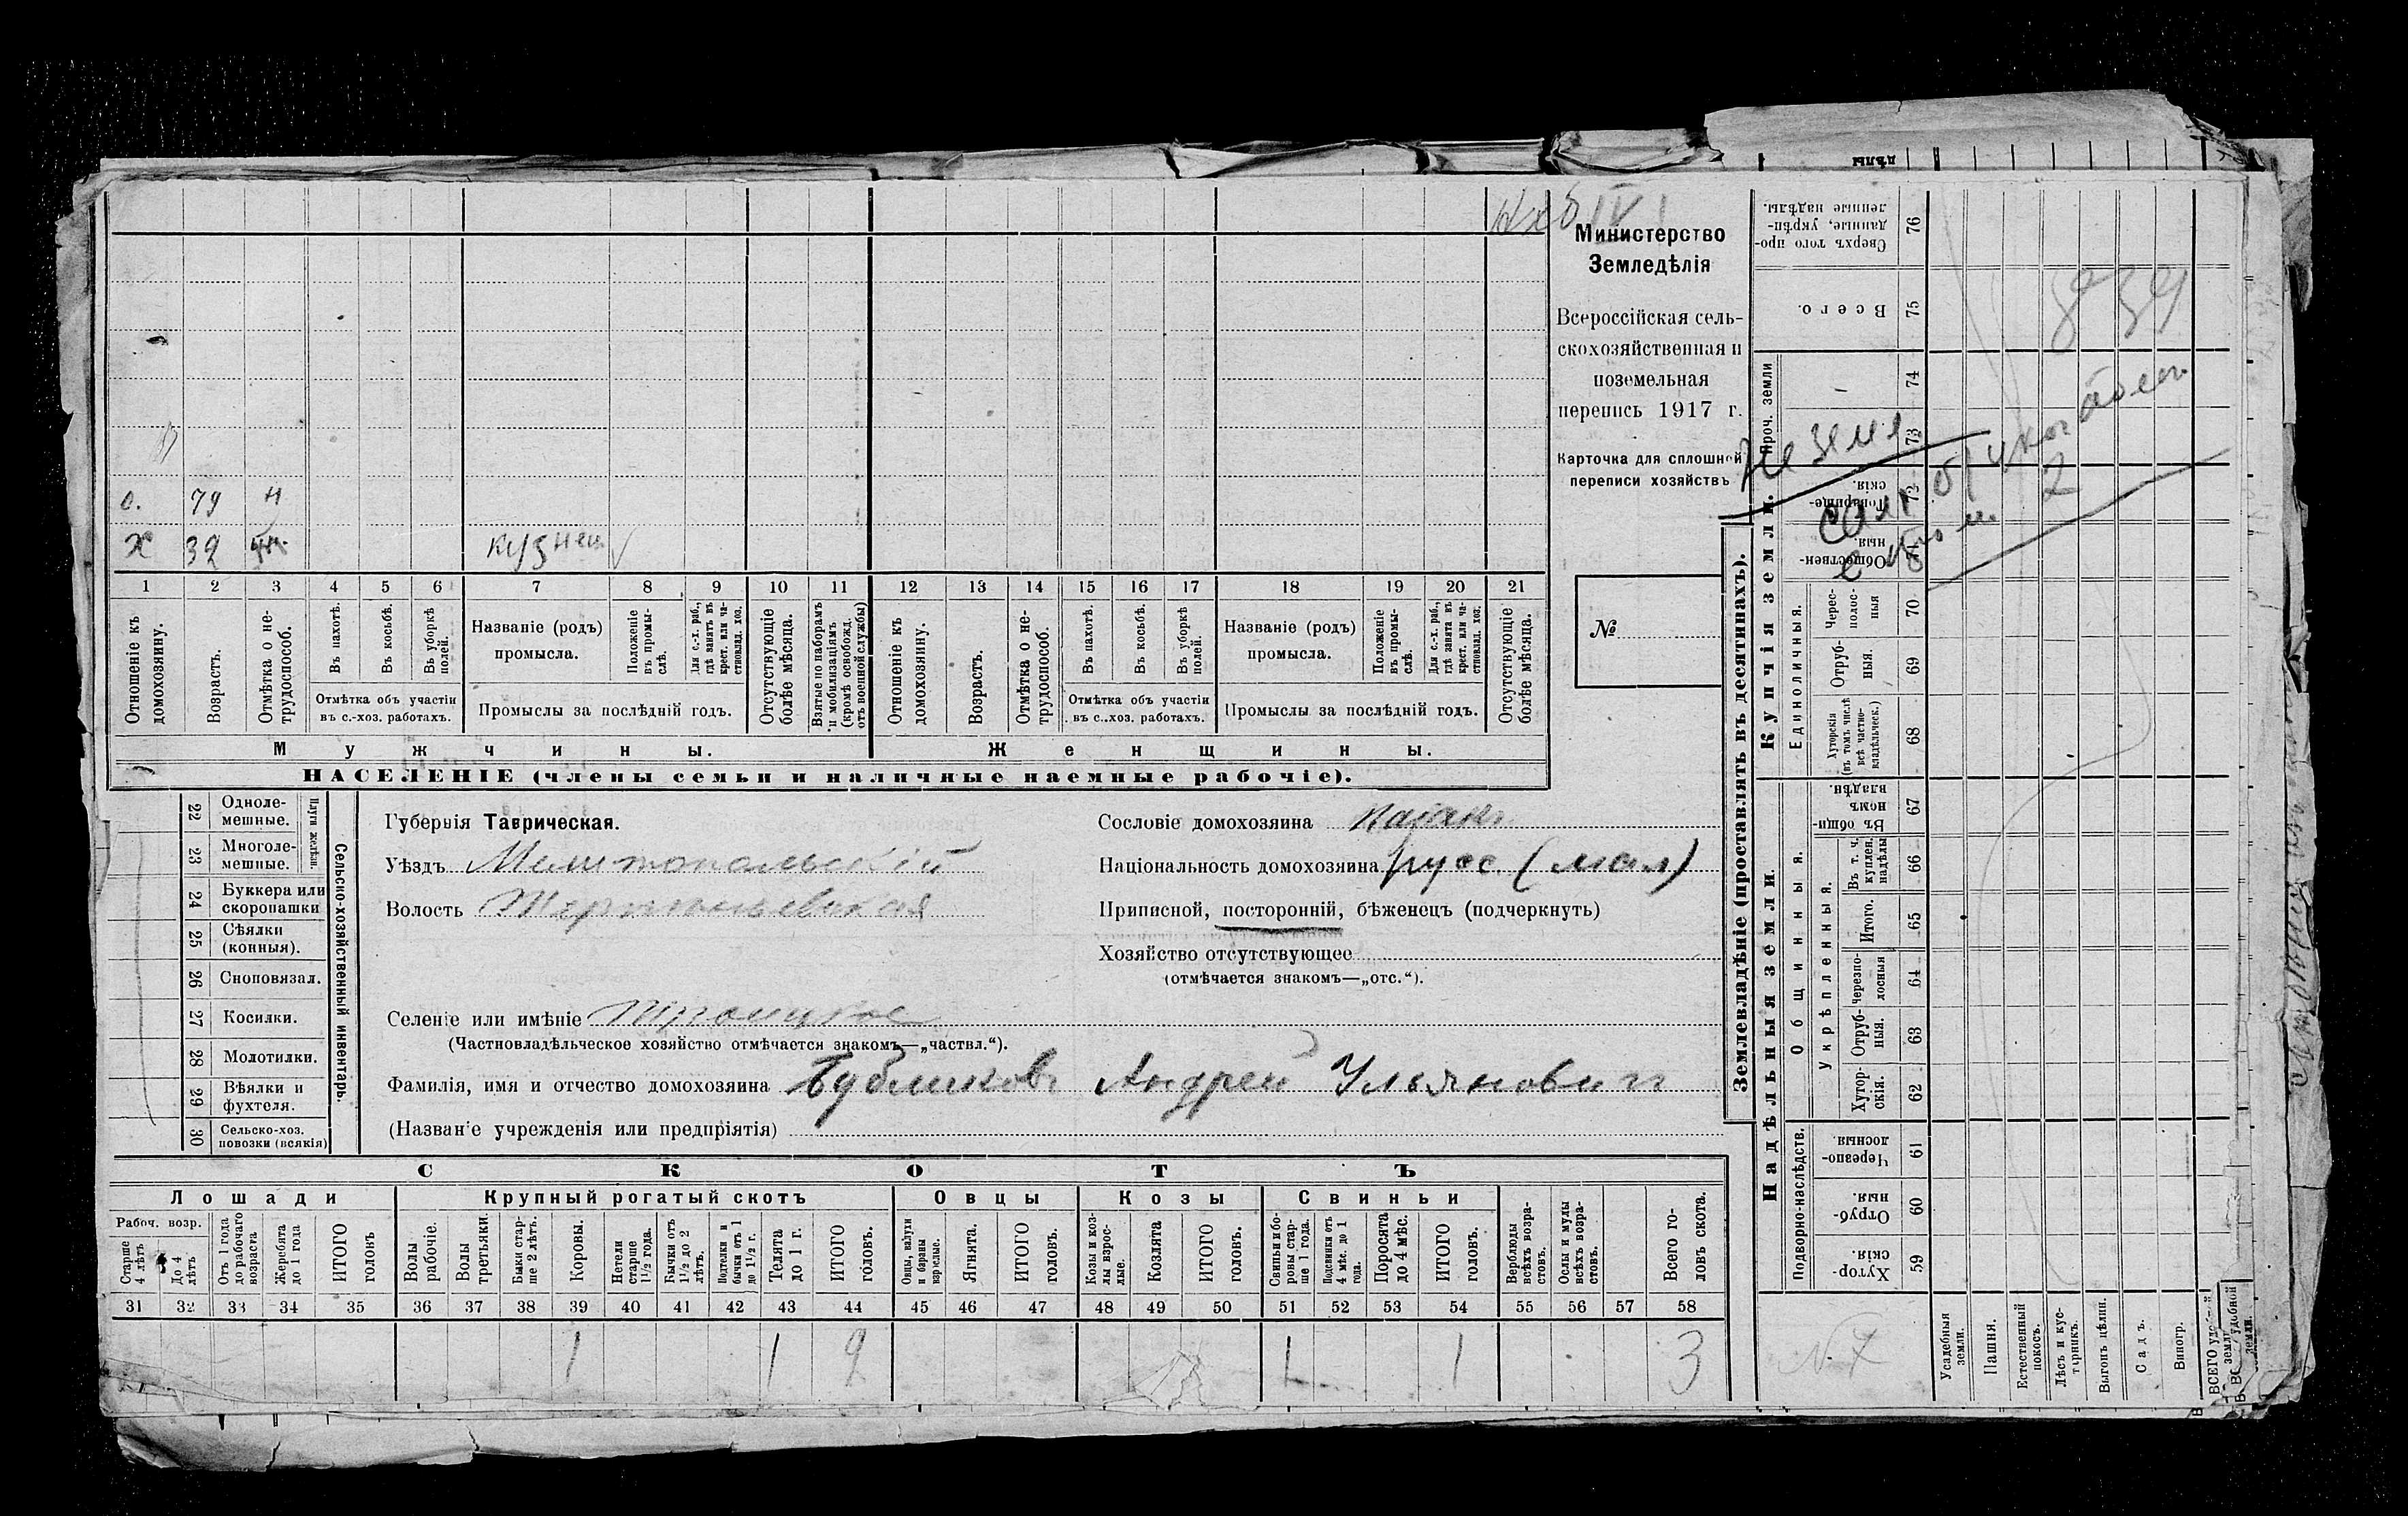 Министерство
Земледѣлія
Всероссійская сель-
скохозяйственная и
поземельная
перепись 1917 г.
Карточка для сплошной
переписи хозяйствъ
№
о. 79 н
х 39
кузнец
1 2 3 4 5 6 7 8 9 10 11 12 13 14 15 16 17 18 19 20 21
Отношеніе къ домохозяину.
Возрастъ.
Отмѣтка о не-трудоспособ.
Въ пахотѣ.
Въ косьбѣ.
Въ уборкѣ полей.
Отмѣтка объ участіи
въ с.-хоз. работахъ.
Названіе (родъ)
промысла.
Положеніе въ промы-слѣ.
Для с.-х. раб., гдѣ занятъ въ крест. или ча-стновлад. хоз.
Промыслы за послѣдній годъ.
Отсутствующіе болѣе мѣсяца.
Взятые по наборамъ и мобилизаціямъ (кромѣ освобожд. отъ военной службы)
Отношеніе къ домохозяину.
Возрастъ.
Отмѣтка о не-трудоспособ.
Въ пахотѣ.
Въ косьбѣ.
Въ уборкѣ полей.
Отмѣтка объ участіи
въ с..хоз. работахъ.
Названіе (родъ)
промысла.
Положеніе въ промы-слѣ.
Для с.-х. раб., гдѣ занята въ крест. или ча-стновлад. хоз.
Промыслы за послѣдній годъ.
Отсутствующіе болѣе мѣсяца.
Мужчины.
Женщины.
НАСЕЛЕНІЕ (члены семьи и наличные наемные рабочіе).
22 Одноле-мешные.
23 Многоле-мешные.
Плуги желѣзн.
24 Буккера или скоропашки
25 Сѣялки (конныя).
26 Сноповязал.
27 Косилки.
28 Молотилки.
29 Вѣялки и фухтеля.
30 Сельско-хоз. повозки (всякія)
Сельско-хозяйственный инвентарь.
Губернія Таврическая.
Уѣздъ Мелитопольскій
Волость
Селеніе или имѣніе Троицкое
(Частновладѣльческое хозяйство отмѣчается знакомъ—„частвл.“).
Фамилія, имя и отчество домохозяина Бубликовъ Андрей Ульянович
(Названіе учрежденія или предпріятія)
Сословіе домохозяина казакъ
Національность домохозяина русс. (мал)
Приписной, посторонній, бѣженецъ (подчеркнуть)
Хозяйство отсутствующее
(отмѣчается знакомъ—„отс.“).
СКОТЪ
Лошади
Крупный рогатый скотъ
Овцы
Козы
Свиньи
Рабоч. возр.
Старше 4 лѣтъ
До 4 лѣтъ
Отъ 1 года до рабочаго возраста
Жеребята до 1 года
ИТОГО головъ
Волы рабочіе.
Волы третьяки.
Быки стар-ше 2 лѣтъ.
Коровы.
Нетели старше 1½ года.
Бычки отъ 1½ до 2 лѣтъ.
Подтелки и бычки отъ 1 до 1½ г.
Телята до 1 г.
ИТОГО головъ.
Овцы, валухи и бараны взрослые.
Ягнята.
ИТОГО головъ.
Козы и коз-лы взрос-лые.
Козлята
ИТОГО головъ.
Свиньи и бо-ровы стар-ше 1 года.
Подсвинки отъ 4 мѣс. до 1 года.
Поросята до 4 мѣс.
ИТОГО головъ.
Верблюды всѣхъ возра-стовъ.
Ослы и мулы всѣхъ возра-стовъ.
Всего го-ловъ скота.
31 32 33 34 35 36 37 38 39 40 41 42 43 44 45 46 47 48 49 50 51 52 53 54 55 56 57 58
1 1 2 1 1 3
Землевладѣніе (проставлять въ десятинахъ).
Купчія земли.
Надѣльныя земли.
Проч. земли
Сверхъ того про-данные, укрѣп-ленные надѣлы. 76
Всего. 75
74
73
Товарище-скія. 72
Обществен-ныя. 71
Единоличныя.
Черес-полос-ныя 70
Отруб-ныя. 69
Хуторскія (въ томъ числѣ всѣ частно-владѣльческ.) 68
Общинныя.
Въ общи-номъ владѣн. 67
Укрѣпленныя.
Въ т. ч. куплен. надѣлы 66
Итого. 65
Черезпо-лосныя 64
Отруб-ныя. 63
Хутор-скія. 62
Подворно-наслѣдств.
Черезпо-лосныя 61
Отруб-ныя. 60
Хутор-скія. 59
839
2
Усадебныя земли.
Пашня.
Естественный покосъ.
Лѣсъ и кус-тарникъ.
Выгонъ цѣлин.
Садъ.
Виногр.